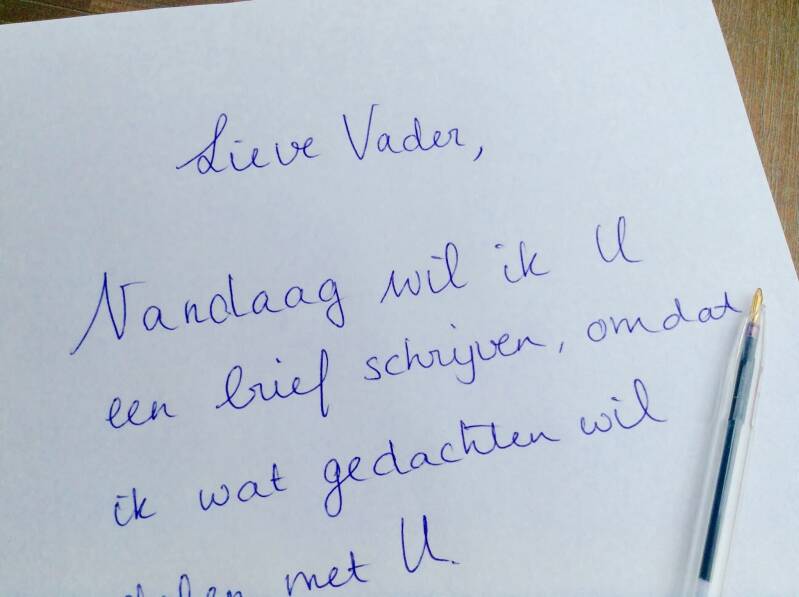 Lieve Vader,
Vandaag wil ik U
een brief schrijven, omdat
ik wat gedachten wil
delen met U.